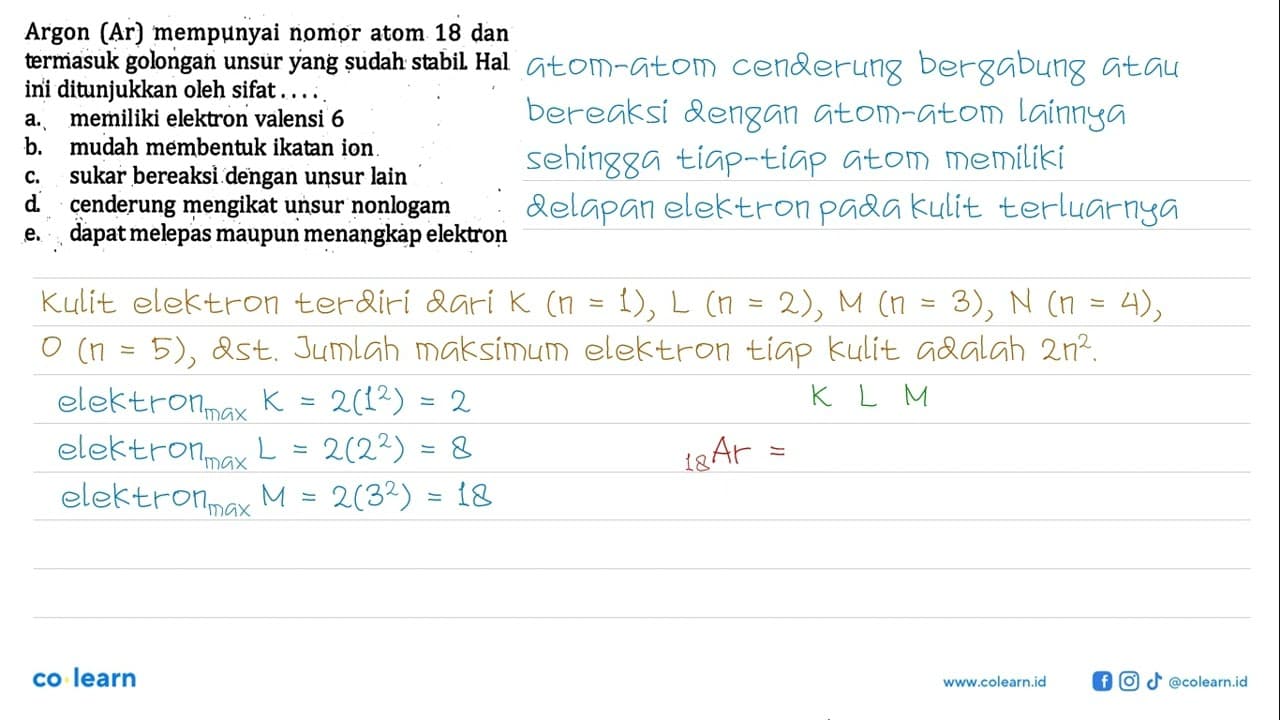 Argon (Ar) mempunyai nomor atom 18 dan
termasuk golongan unsur yang sudah stabil. Hal
ini ditunjukkan oleh sifat . . . .
a. memiliki elektron valensi 6
b. mudah membentuk ikatan ion
c. sukar bereaksi dengan unsur lain
d. cenderung mengikat unsur nonlogam
e. dapat melepas maupun menangkap elektron
atom-atom cenderung bergabung atau
bereaksi dengan atom-atom lainnya
sehingga tiap-tiap atom memiliki
delapan elektron pada kulit terluarnya
Kulit elektron terdiri dari K (n = 1), L (n = 2), M (n = 3), N (n = 4),
O (n = 5), dst. Jumlah maksimum elektron tiap kulit adalah 2n².
elektron_max K = 2(1²) = 2
elektron_max L = 2(2²) = 8
elektron_max M = 2(3²) = 18
K L M
₁₈Ar =
co learn
www.colearn.id
@colearn.id